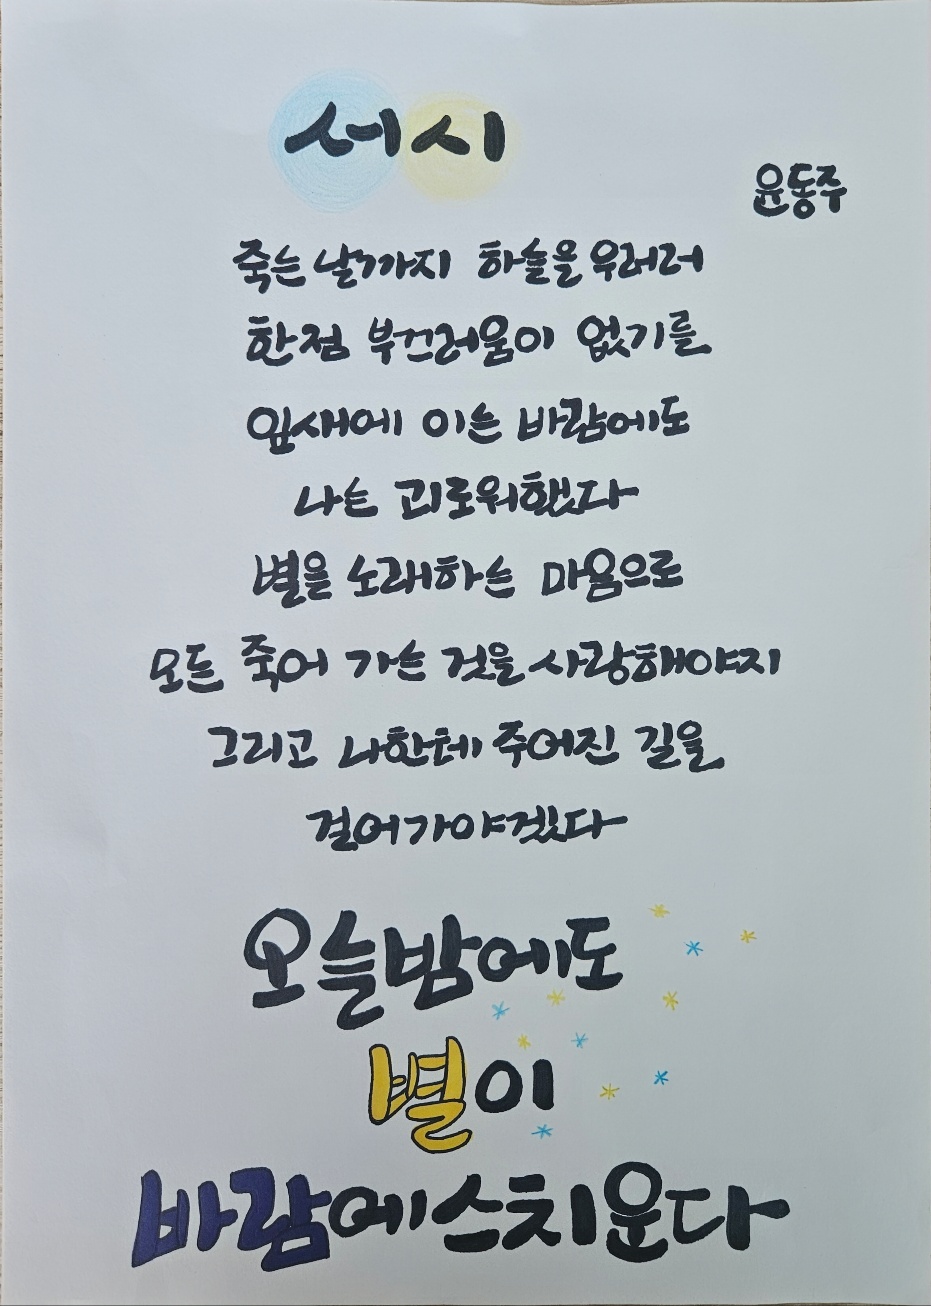 서시
윤동주
죽는 날까지 하늘을 우러러
한점 부끄러움이 없기를
잎새에 이는 바람에도
나는 괴로워했다
별을 노래하는 마음으로
모든 죽어 가는 것을 사랑해야지
그리고 나한테 주어진 길을
걸어가야겠다
오늘밤에도
별이
바람에스치운다